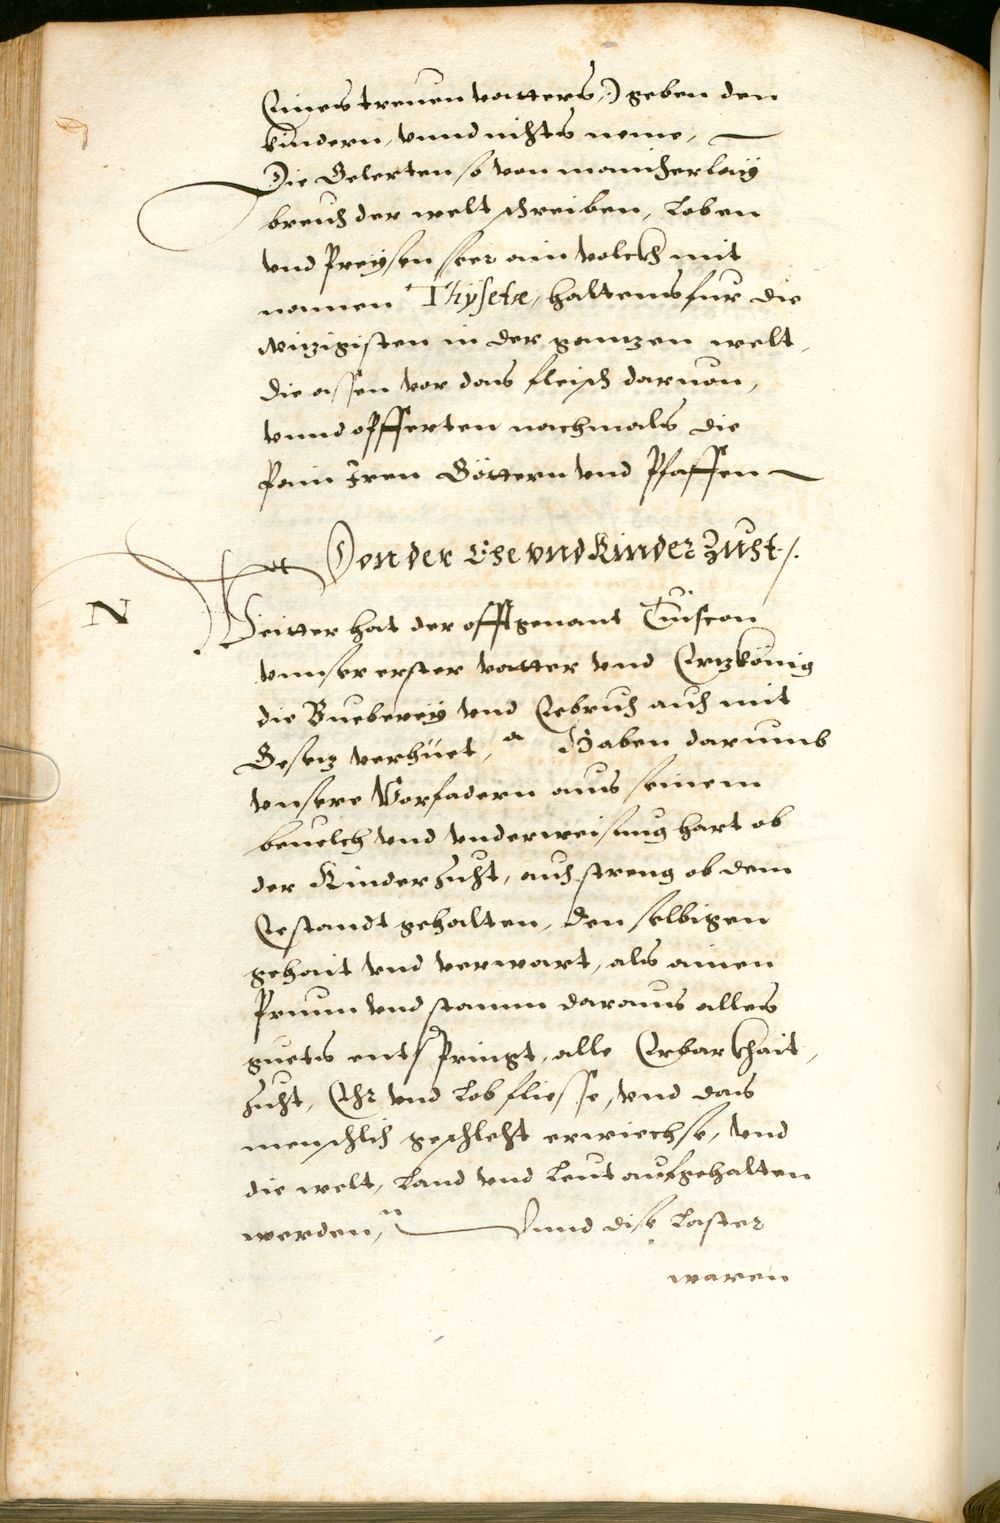 Eines treuen vatters,) geben den
kindern, vnnd nichts neme,
Die Gelerten so von manicherlaÿ
breuch der welt schreiben, Loben
vnd Preÿsen seer ain volckh mit
nammen Thÿsetæ, haltens fur die
witzigisten in der gantzen welt,
die assen vor das fleisch daruon,
vnnd opfferten nachmals die
Pain Iren Göttern vnd Pfaffen
Von der Ehe vnd Kinder Zucht /.
N
Weitter hat der offtgenant Tuiscon
vnnser erster vatter vnd Ertzkönig
die Buebereÿ vnd Eebruch auch mit
Gesetz verhüet, a Haben darumb
vnsere Vorfadern aus seinem
beuelch vnd vnderweisung hart ob
der Kinderzucht, auch streng ob dem
Eestandt gehalten, den selbigen
gehait vnd verwart, als ainen
Prunn vnd stamm daraus alles
guets entspringt, alle Erbarkhait,
zucht, Ehr vnd Lob fliesse, vnd das
menschlich geschlecht erwiechse, vnd
die welt, Land vnd Leut aufgehalten
werden, Vnnd dise Laster
waren